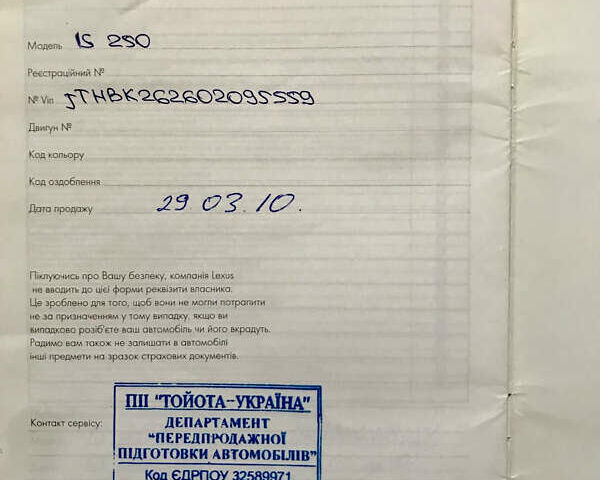 Модель IS 250
Реєстраційний №
№ Vin JTHBK262602095559
Двигун №
Код кольору
Код оздоблення
Дата продажу 29 03.10.
Піклуючись про Вашу безпеку, компанія Lexus
не вводить до цієї форми реквізити власника.
Це зроблено для того, щоб вони не могли потрапити
не за призначенням у тому випадку, якщо ви
випадково розіб'єте ваш автомобіль чи його вкрадуть.
Радимо вам також не залишати в автомобілі
інші предмети на зразок страхових документів.
Контакт сервісу:
ПІІ "ТОЙОТА-УКРАЇНА"
ДЕПАРТАМЕНТ
"ПЕРЕДПРОДАЖНОЇ
ПІДГОТОВКИ АВТОМОБІЛІВ"
Код ЄДРПОУ 32589971